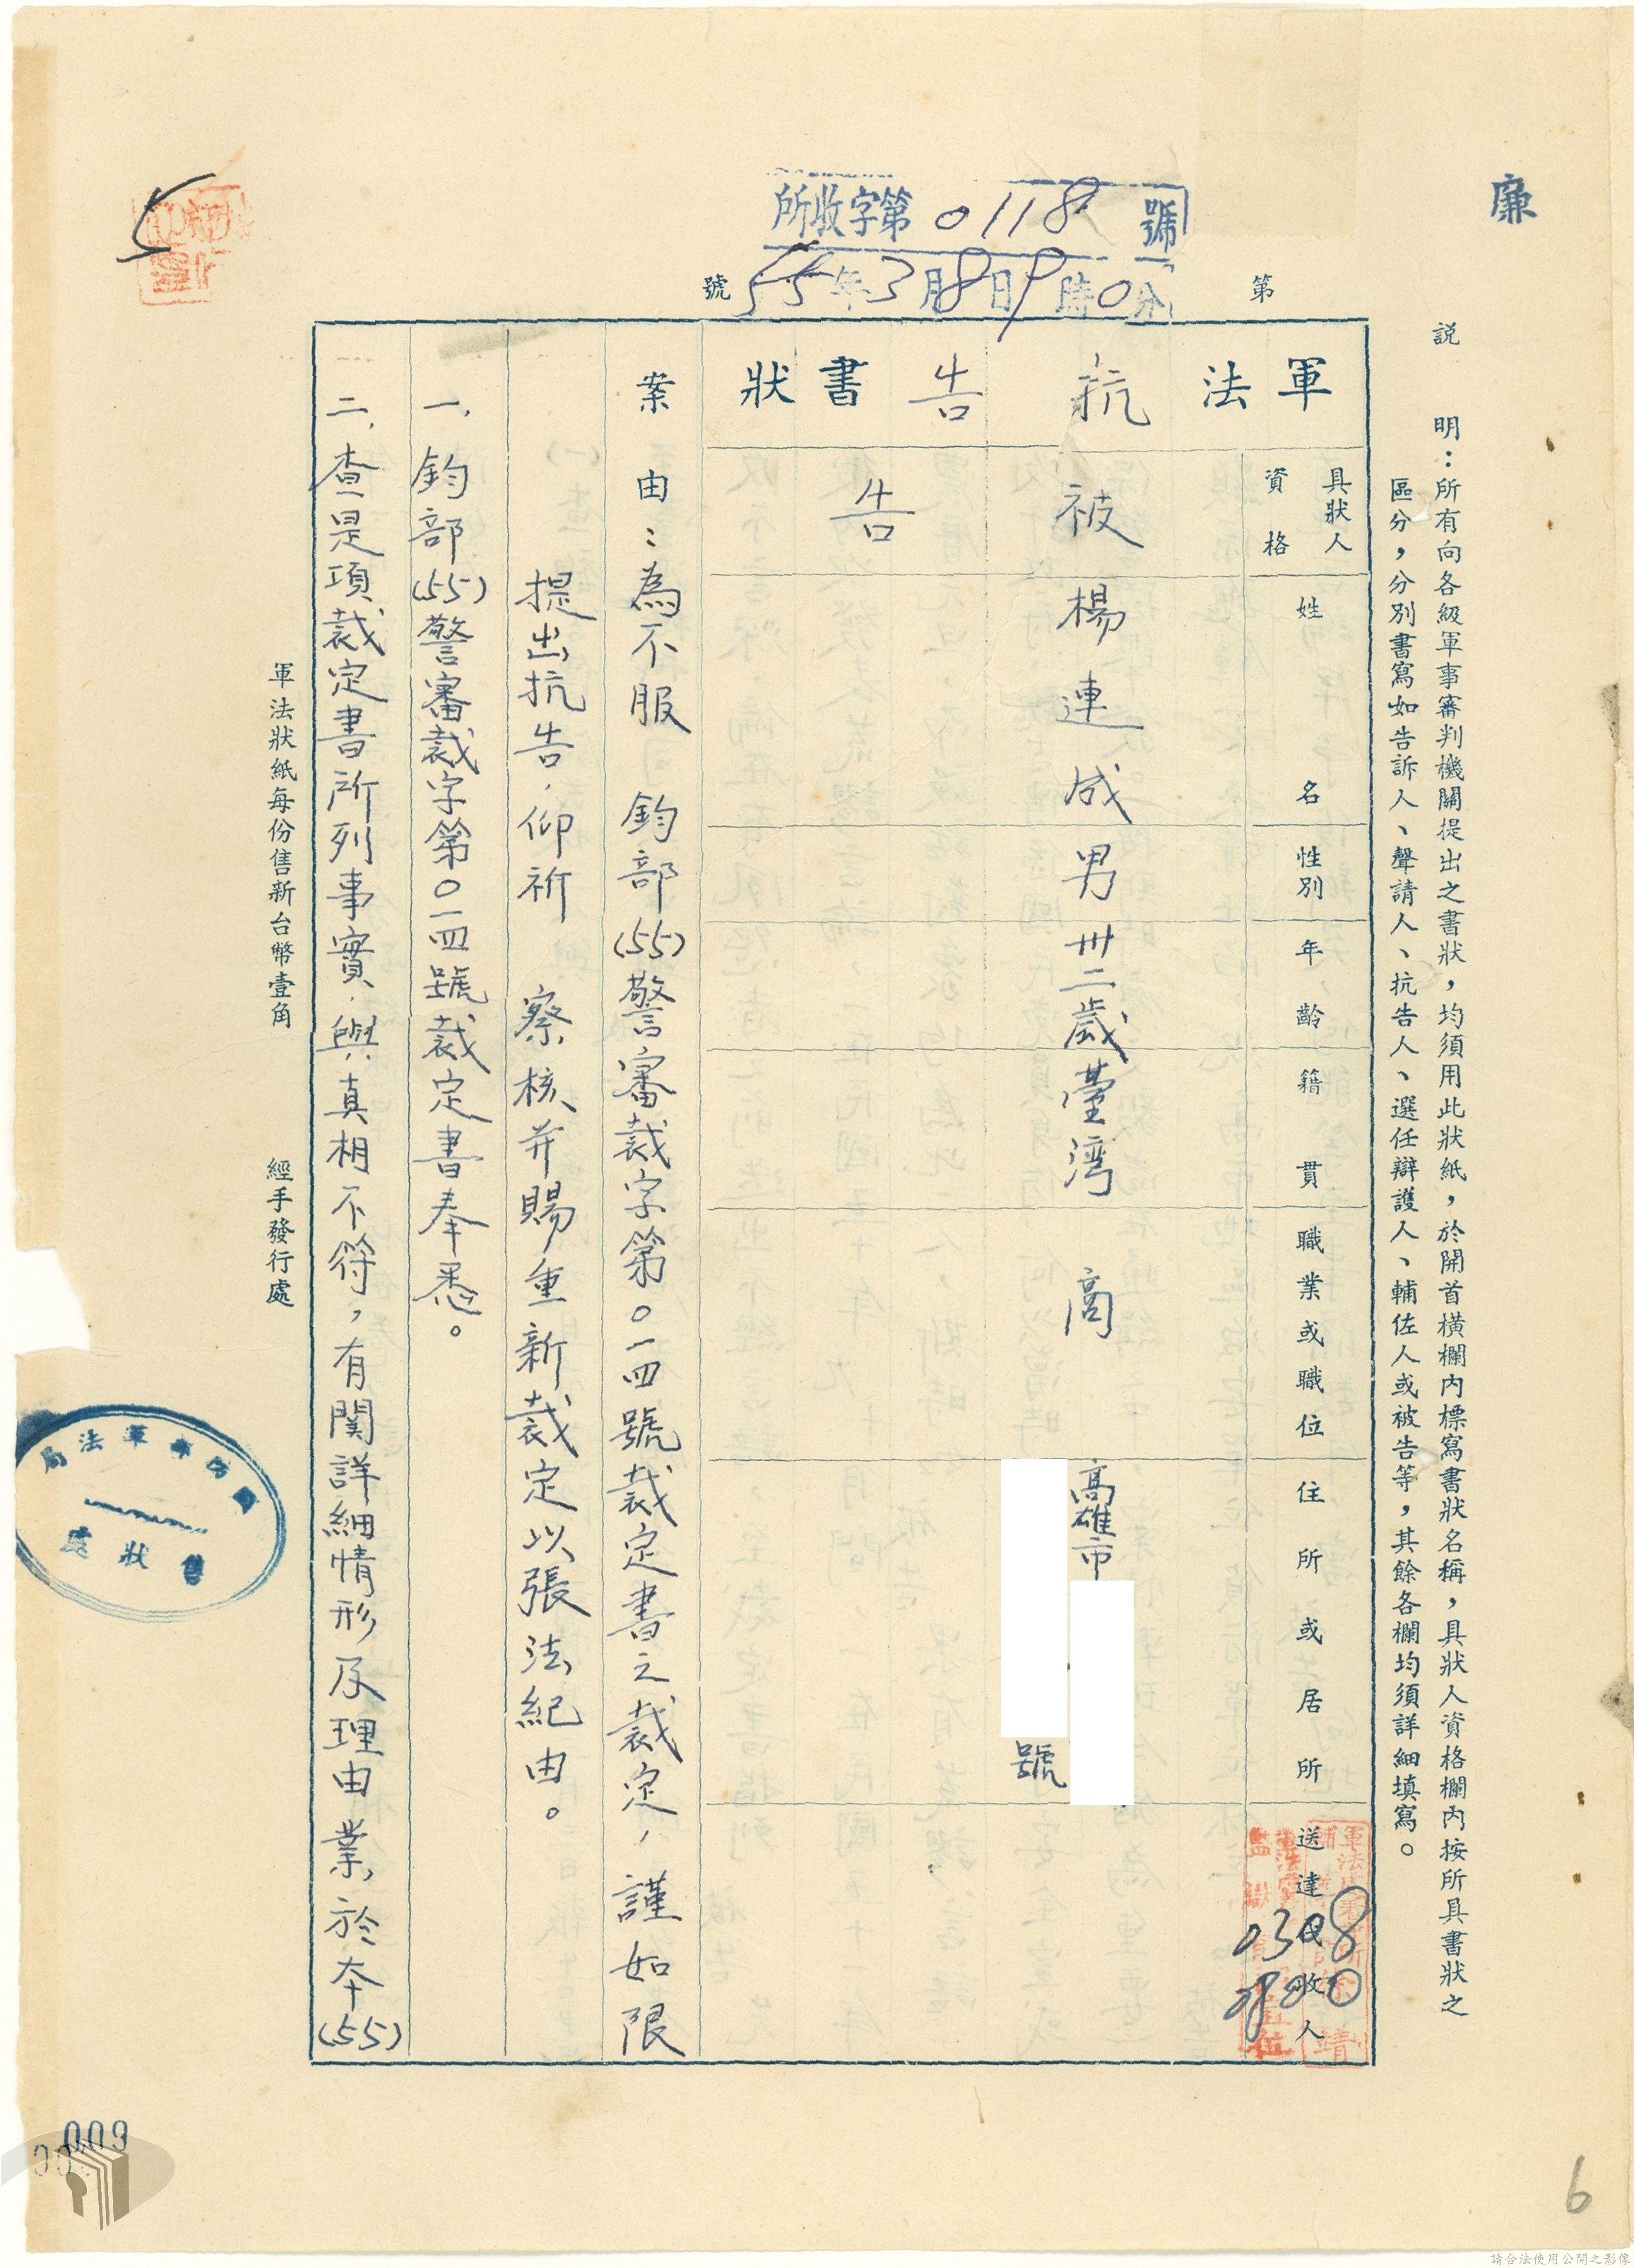 廉
所收字第0118號
55年3月8日9時0分
第 號
說 明：所有向各級軍事審判機關提出之書狀，均須用此狀紙，於開首橫欄內標寫書狀名稱，具狀人資格欄內按所具書狀之
區分，分別書寫如告訴人、聲請人、抗告人、選任辯護人、輔佐人或被告等，其餘各欄均須詳細填寫。
軍法抗告書狀
具狀人
資格
姓名
性別
年齡
籍貫
職業或職位
住所或居所
送達代收人
0308
0900
被告
楊連成
男
卅二歲
臺灣
商
高雄市
號
案由：為不服 鈞部(55)警審裁字第〇一四號裁定書之裁定，謹如限
提出抗告，仰祈 察核并賜重新裁定以張法紀由。
一、鈞部(55)警審裁字第〇一四號裁定書奉悉。
二、查是項裁定書所列事實，與真相不符，有関詳細情形及理由業於本(55)
軍法狀紙每份售新台幣壹角 經手發行處
國防部軍法局
售狀處
009
6
請合法使用公開之影像